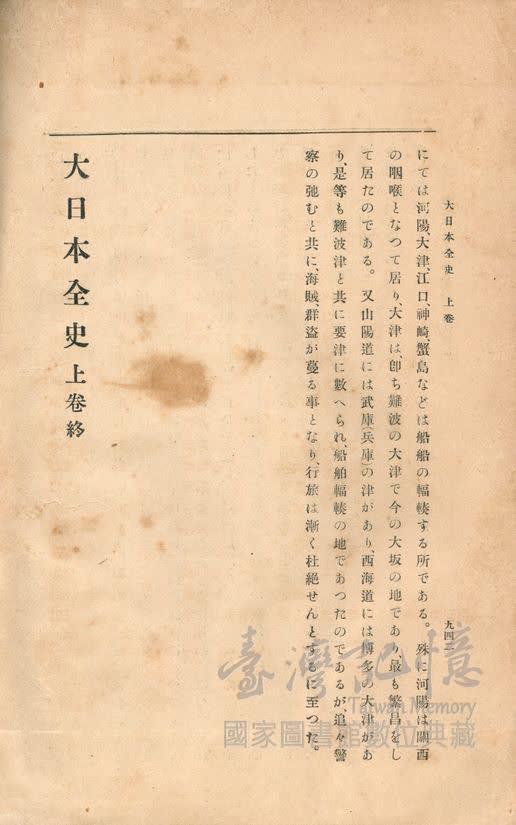 大日本全史 上卷
九四二
にては河陽、大津、江口、神崎、蟹島などは船船の輻輳する所である。殊に河陽は關西
の咽喉となつて居り、大津は、卽ち難波の大津で今の大坂の地であり、最も繁昌をし
て居たのである。又山陽道には武庫(兵庫)の津があり、西海道には博多の大津があ
り、是等も難波津と共に要津に數へられ、船舶輻輳の地であつたのであるが、追々警
察の弛むと共に、海賊、群盜が蔓る事となり、行旅は漸く杜絕せんとするに至つた。
大日本全史 上卷終
臺灣記憶
Taiwan Memory
國家圖書館數位典藏